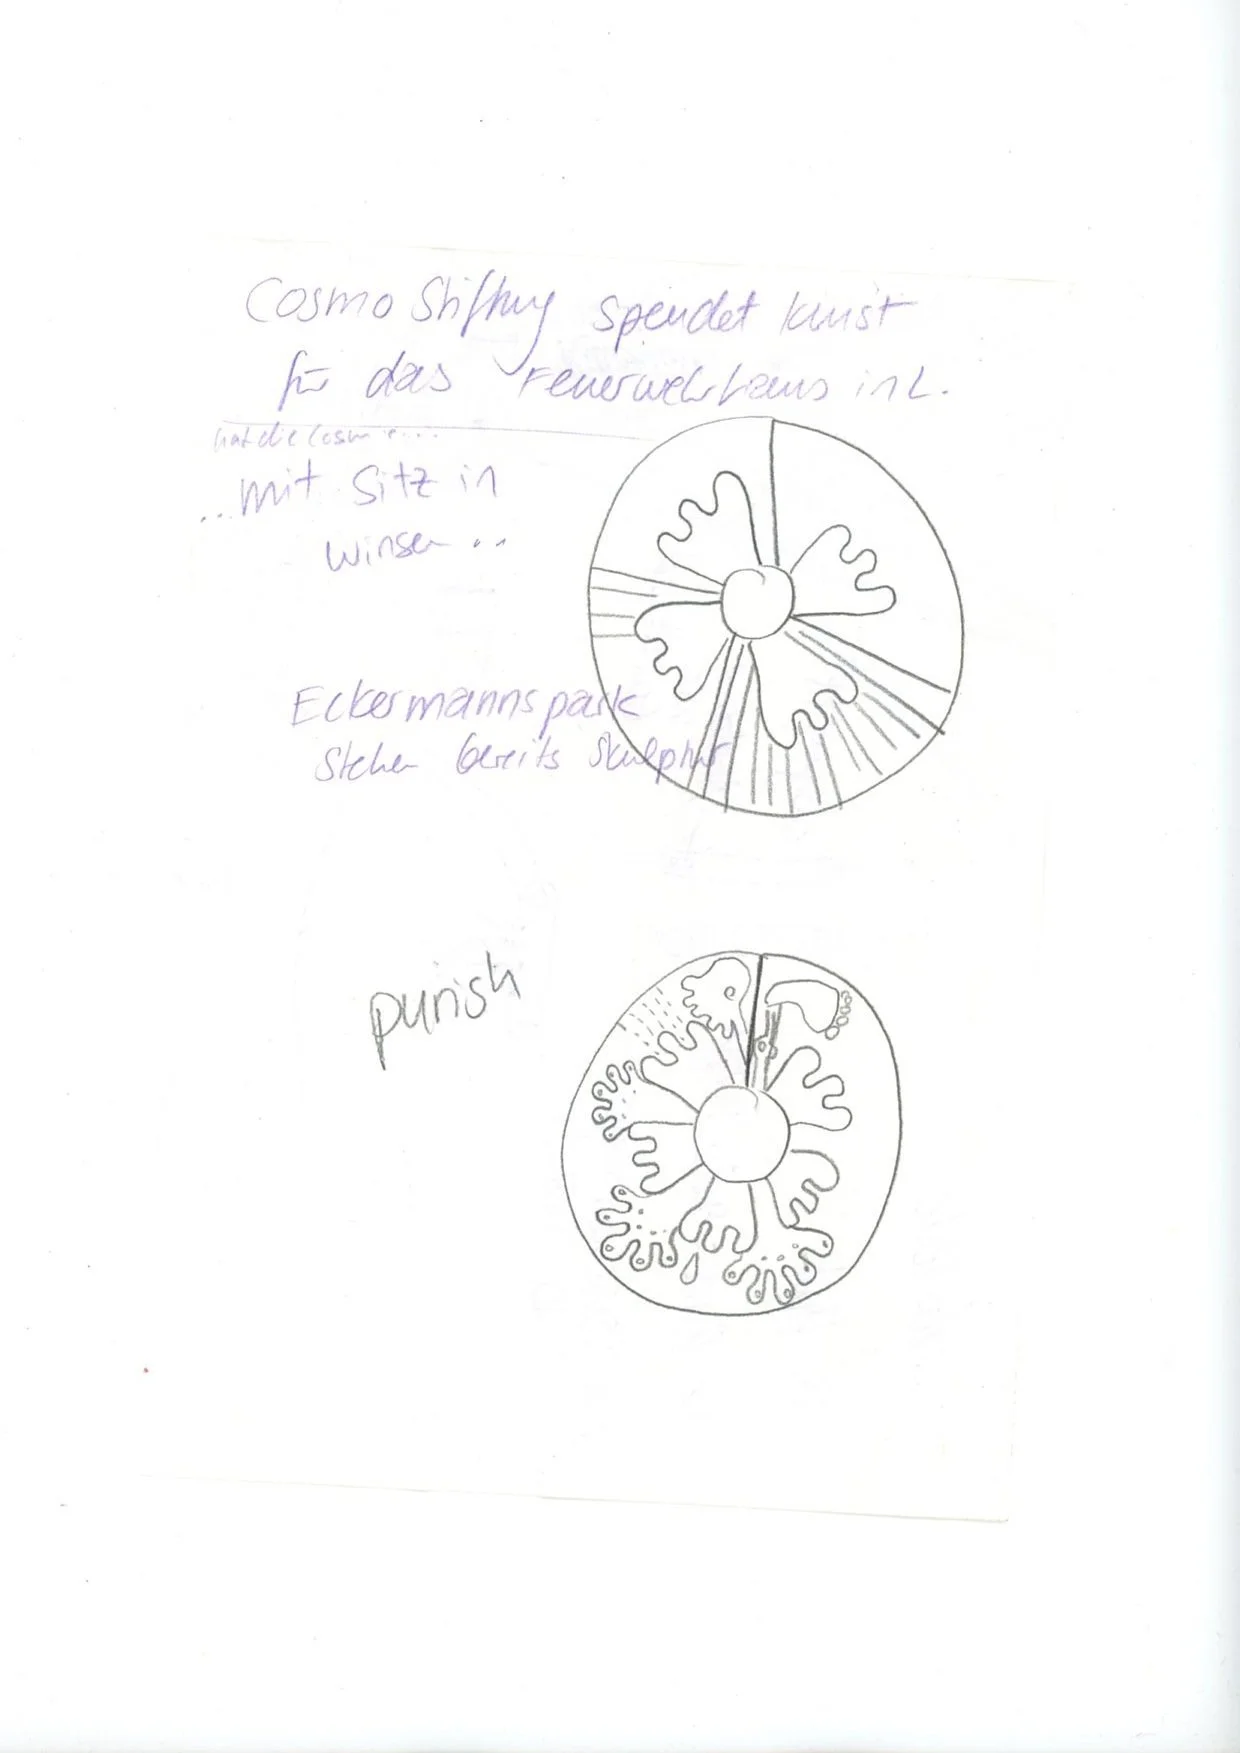 Cosmo Stiftung spendet Kunst
für das Feuerwehrhaus in L.
hat die Cosm
...mit Sitz in
Winsen ..
Eckermannspark
Stehen bereits Skulptur